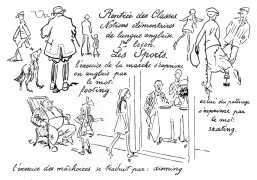 Rentrée des Classes
Notions élémentaires
de langue anglaise.
1ère leçon.
Les Sports.
l'exercice de la marche s'exprime
en anglais par
le mot:
footing.
celui du patinage
s'exprime par
le mot:
skating.
l'exercice des mâchoires se traduit par: